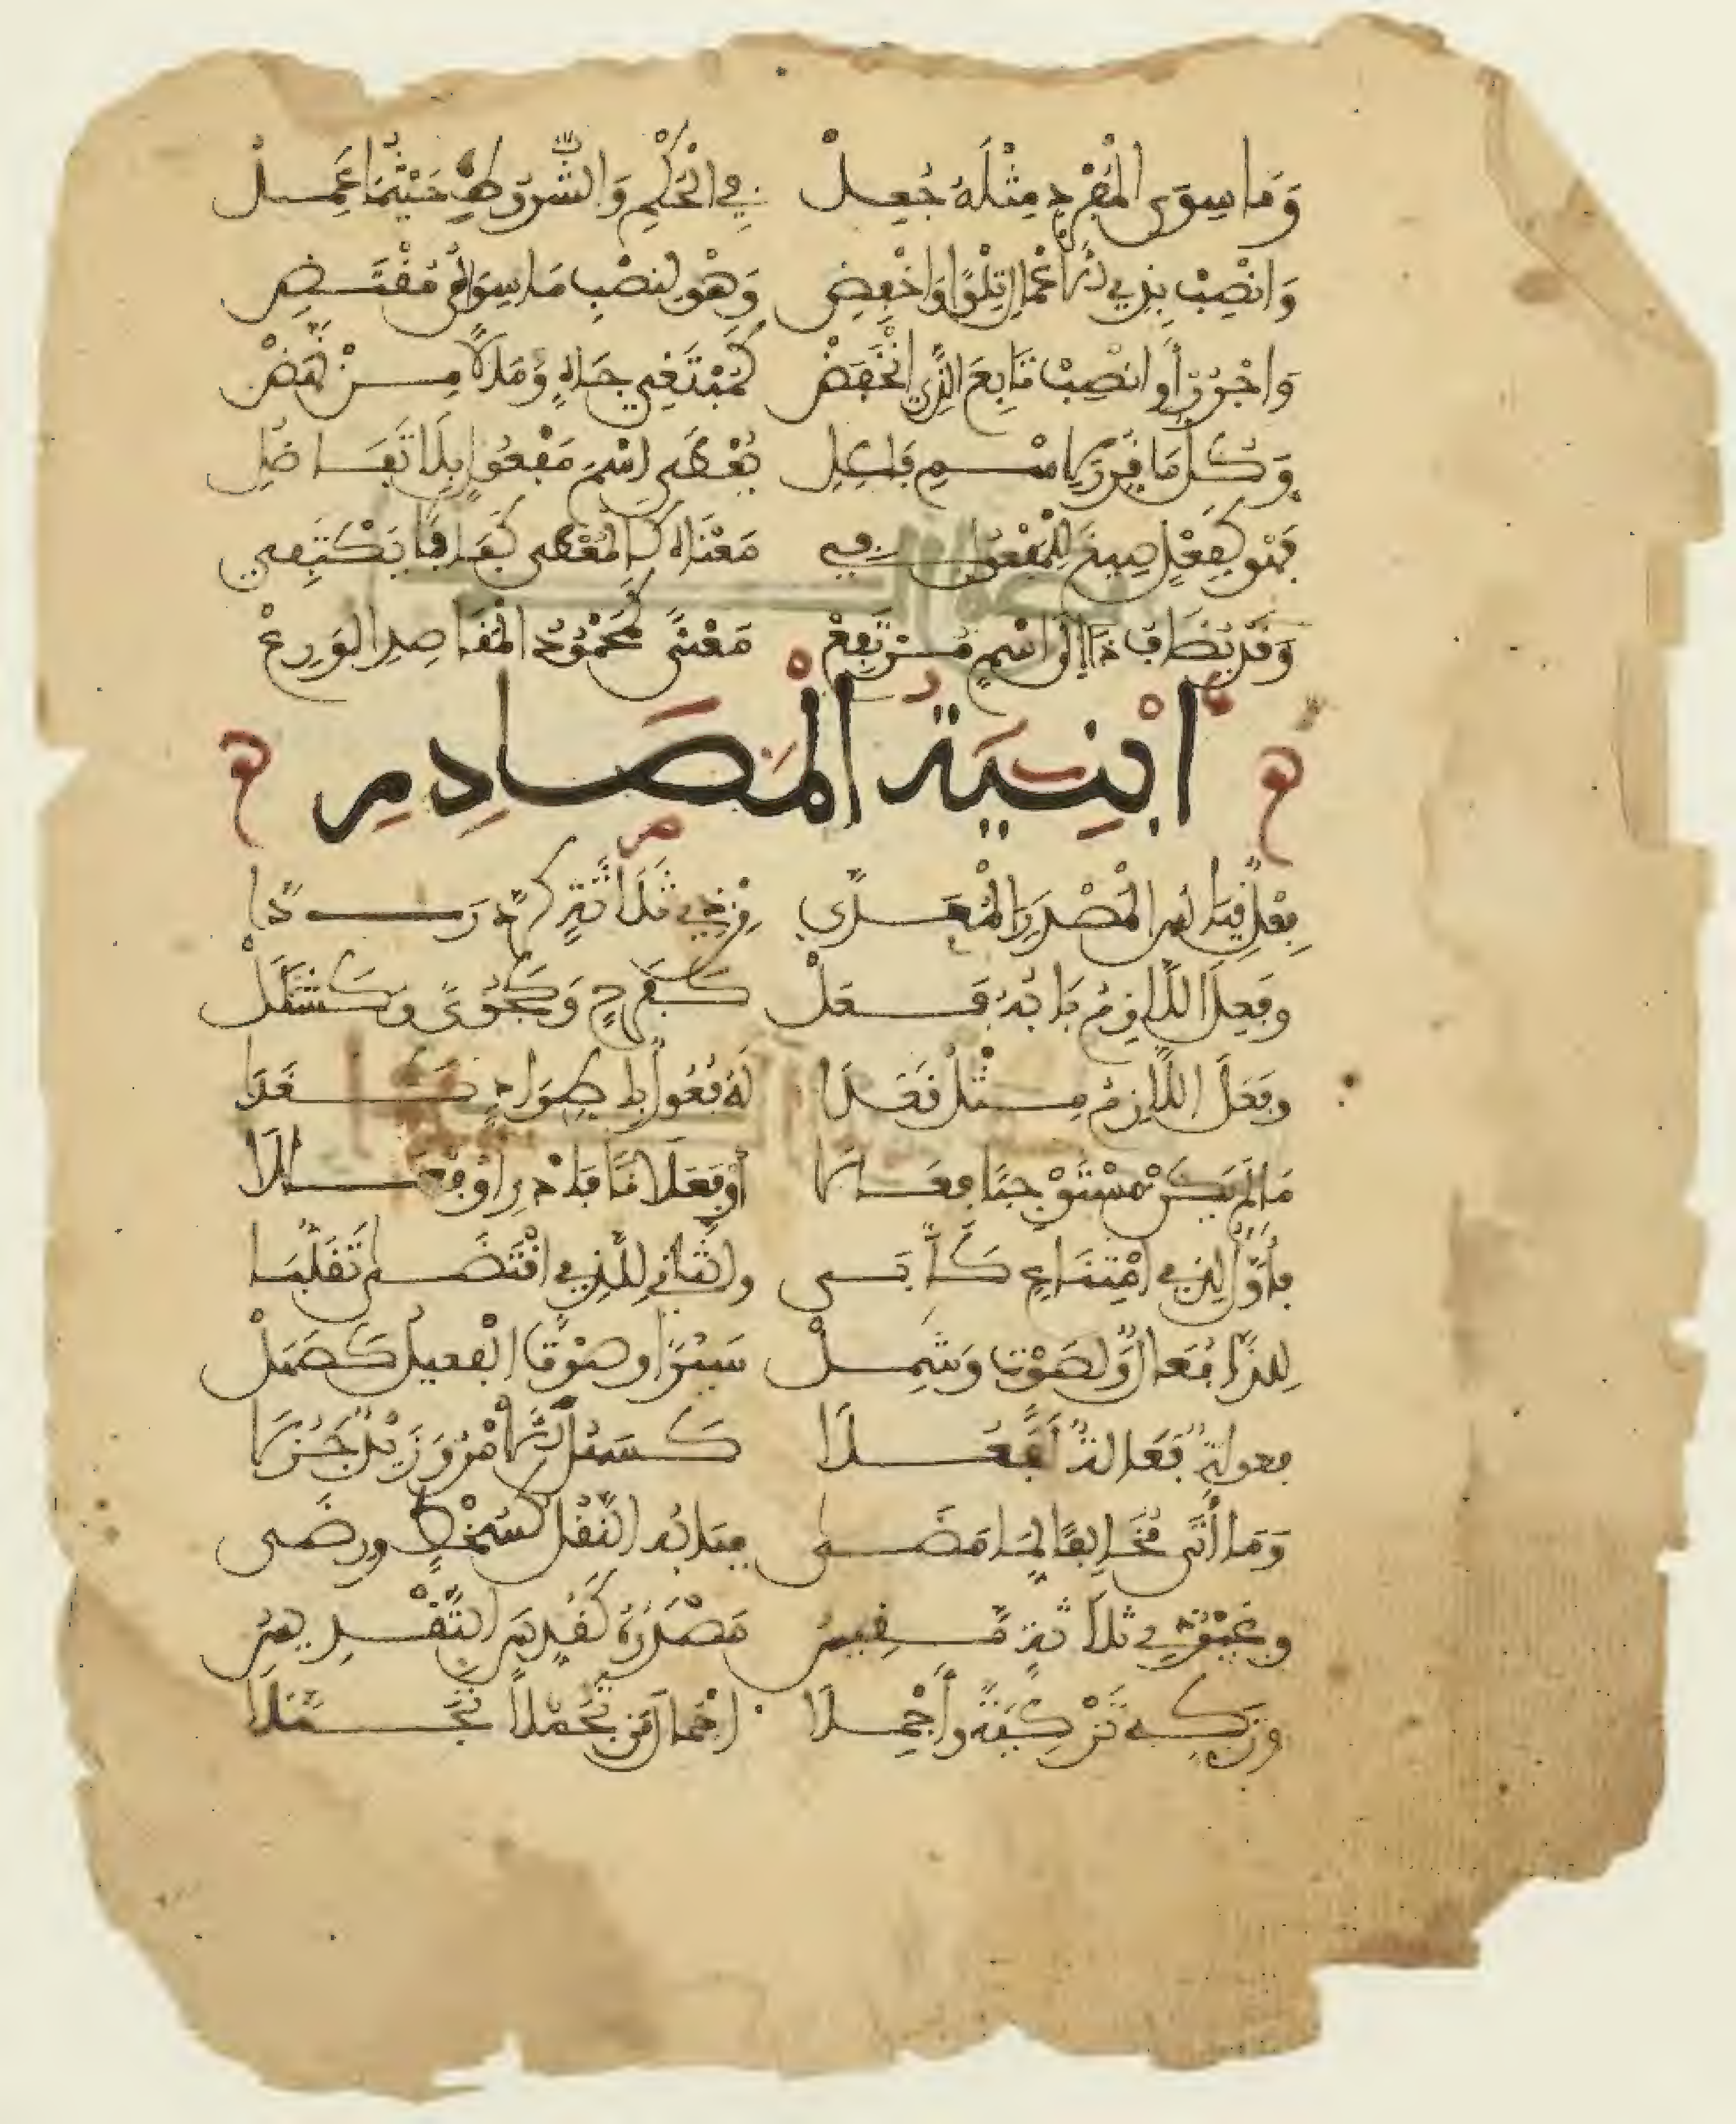 وَمَا سِوَى الْمُفْرَدِ مِثْلَهُ جُعِلْ فِي الْحُكْمِ وَالشُّرُوطِ حَيْثُمَا عَمِلْ
وَانْصِبْ بِذِي الْإِعْمَالِ تِلْوًا وَاخْفِضِ وَهْوَ لِنَصْبِ مَا سِوَاهُ مُقْتَضِ
وَاجْرُرْ أَوِ انْصِبْ تَابِعَ الَّذِي انْخَفَضْ كَمُبْتَغِي جَاهٍ وَمَالًا مَنْ نَهَضْ
وَكُلُّ مَا قُرِّرَ لِاسْمِ فَاعِلِ يُعْطَى اسْمَ مَفْعُولٍ بِلَا تَفَاضُلِ
فَهْوَ كَفِعْلٍ صِيغَ لِلْمَفْعُولِ فِي مَعْنَاهُ كَالْمُعْطَى كَفَافًا يَكْتَفِي
وَقَدْ يُضَافُ ذَا إِلَى اسْمٍ مُرْتَفِعْ مَعْنًى كَمَحْمُودُ الْمَقَاصِدِ الْوَرِعْ
أَبْنِيَةُ الْمَصَادِرِ
فَعْلٌ قِيَاسُ الْمَصْدَرِ الْمُعَدَّى مِنْ ذِي ثَلَاثَةٍ كَرَدَّ رَدًّا
وَفَعِلَ اللَّازِمُ بَابُهُ فَعَلْ كَفَرَحٍ وَكَجَوًى وَكَشَلَلْ
وَفَعَلَ اللَّازِمُ مِثْلَ قَعَدَا لَهُ فُعُولٌ بِاطِّرَادٍ كَغَدَا
مَا لَمْ يَكُنْ مُسْتَوْجِبًا فِعَالَا أَوْ فَعَلَانًا فَادْرِ أَوْ فُعَالَا
فَأَوَّلٌ لِذِي امْتِنَاعٍ كَأَبَى وَالثَّانِ لِلَّذِي اقْتَضَى تَقَلُّبَا
لِلدَّا فُعَالٌ أَوْ لِصَوْتٍ وَشَمِلْ سَيْرًا وَصَوْتًا الْفَعِيلُ كَصَهَلْ
فُعُولَةٌ فَعَالَةٌ لِفَعُلَا كَسَهُلَ الْأَمْرُ وَزَيْدٌ جَزُلَا
وَمَا أَتَى مُخَالِفًا لِمَا مَضَى فَبَابُهُ النَّقْلُ كَسُخْطٍ وَرِضَى
وَغَيْرُ ذِي ثَلَاثَةٍ مَقِيسُ مَصْدَرُهُ كَقُدِّسَ التَّقْدِيسُ
وَزَكِّهِ تَزْكِيَةً وَأَجْمِلَا إِجْمَالَ مَنْ تَجَمُّلًا تَجَمَّلَا